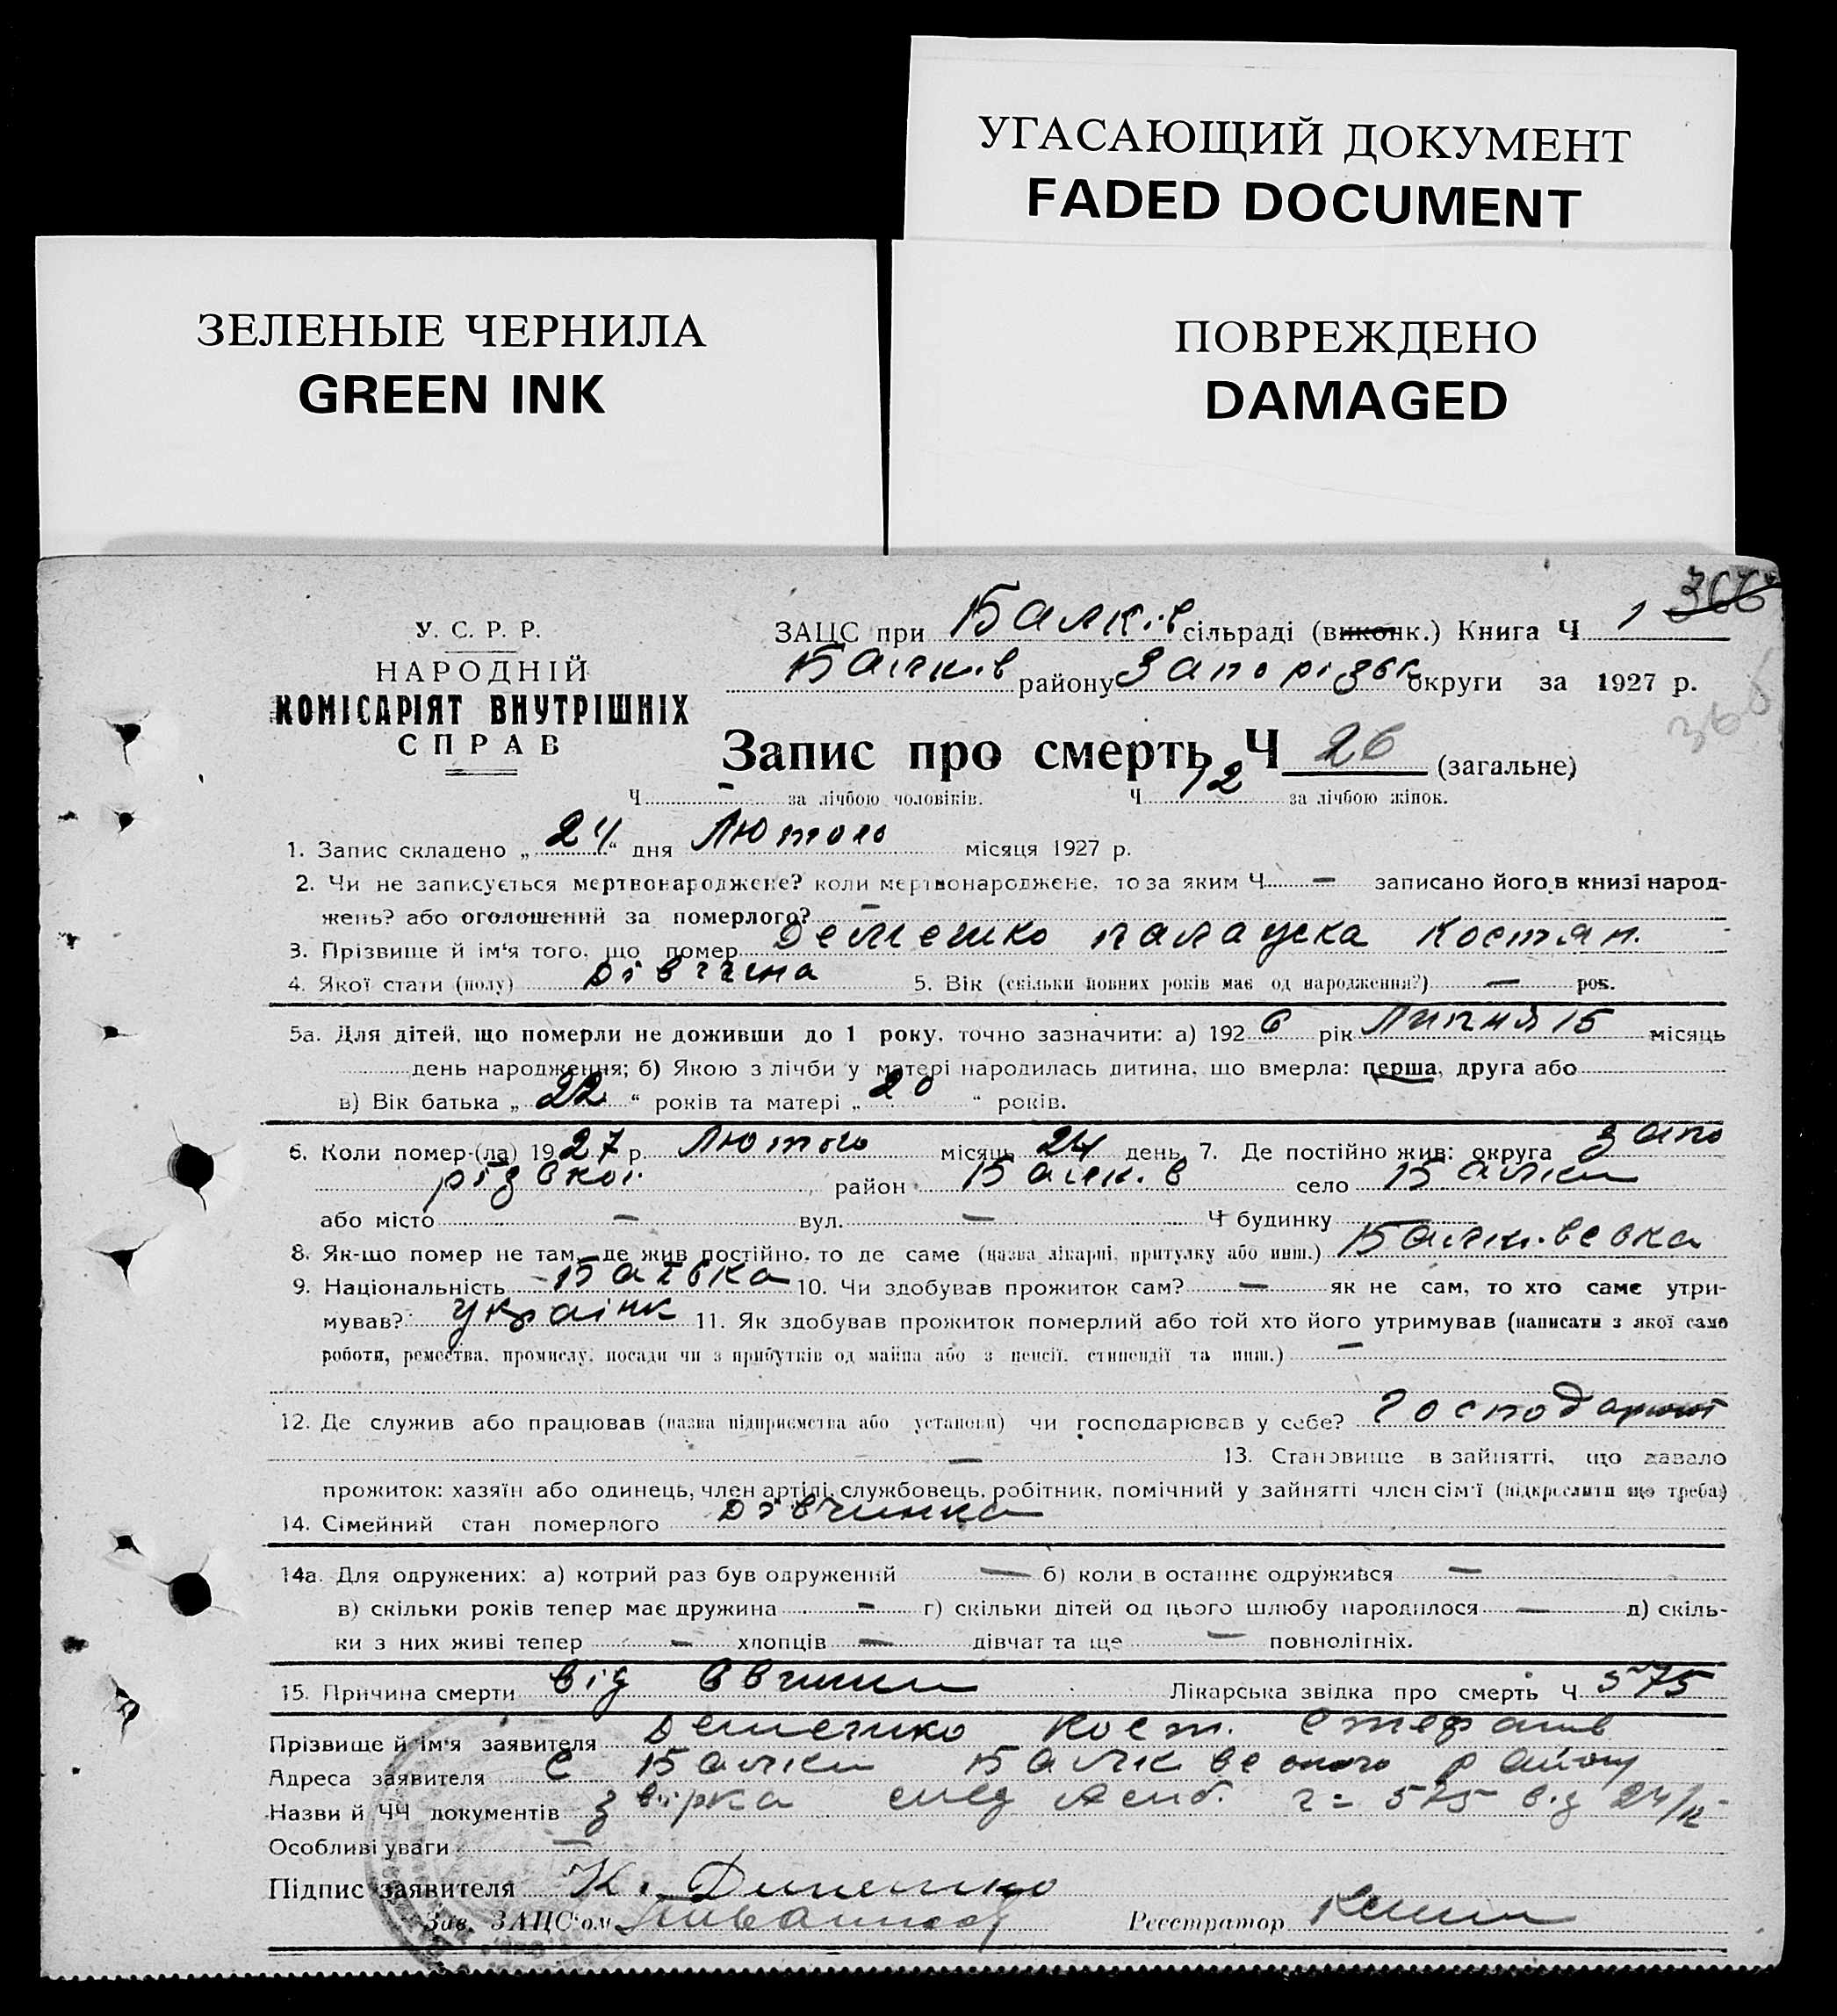 УГАСАЮЩИЙ ДОКУМЕНТ
FADED DOCUMENT
ЗЕЛЕНЫЕ ЧЕРНИЛА
GREEN INK
ПОВРЕЖДЕНО
DAMAGED
366
У. С. Р. Р.
НАРОДНІЙ
КОМІСАРІЯТ ВНУТРІШНІХ
СПРАВ
ЗАЦС при Балків сільраді (виконк.) Книга Ч 1
Балків району Запорізьк округи за 1927 р.
366
Запис про смерть Ч 26 (загальне)
Ч - за лічбою чоловіків. Ч 12 за лічбою жінок.
1. Запис складено „ 24 “ дня Лютого місяця 1927 р.
2. Чи не записується мертвонароджене? коли мертвонароджене, то за яким Ч — записано його в книзі народ-
жень? або оголошений за померлого? —
3. Прізвище й ім'я того, що помер Костян.
4. Якої стати (полу) Дівчина 5. Вік (скільки повних років має од народження?) — рок.
5а. Для дітей, що померли не доживши до 1 року, точно зазначити: а) 1926 рік Липня 15 місяць
день народження; б) Якою з лічби у матері народилась дитина, що вмерла: перша, друга або
в) Вік батька „ 22 “ років та матері „ 20 “ років.
6. Коли помер-(ла) 1927 р. Лютого місяць 24 день 7. Де постійно жив: округа Запо
різької район Балків село Балки
або місто — вул. — Ч будинку
8. Як-що помер не там, де жив постійно, то де саме (назва лікарні, притулку або инш.)
9. Національність - Батька 10. Чи здобував прожиток сам? — як не сам, то хто саме утри-
мував? україни 11. Як здобував прожиток померлий або той хто його утримував (написати з якої само
роботи, ремества, промислу, посади чи з прибутків од майна або з пенсії, стипендії та инш.) —
12. Де служив або працював (назва підприємства або установи) чи господарював у себе?
— 13. Становище в зайнятті, що давало
прожиток: хазяїн або одинець, член артілі, службовець, робітник, помічний у зайнятті член сім'ї (підкреслити що треба)
14. Сімейний стан померлого Дівчинка
14а. Для одружених: а) котрий раз був одружений — б) коли в останнє одружився —
в) скільки років тепер має дружина - г) скільки дітей од цього шлюбу народилося — д) скіль-
ки з них живі тепер - хлопців — дівчат та ще — повнолітніх.
15. Причина смерти від Лікарська звідка про смерть Ч 575
Прізвище й ім'я заявителя Кост. Стефанів
Адреса заявителя С Балки Балківського району
Назви й ЧЧ документів 575 від 24/II
Особливі уваги —
Підпис заявителя К.
Зав. ЗАЦС'ом Реєстратор